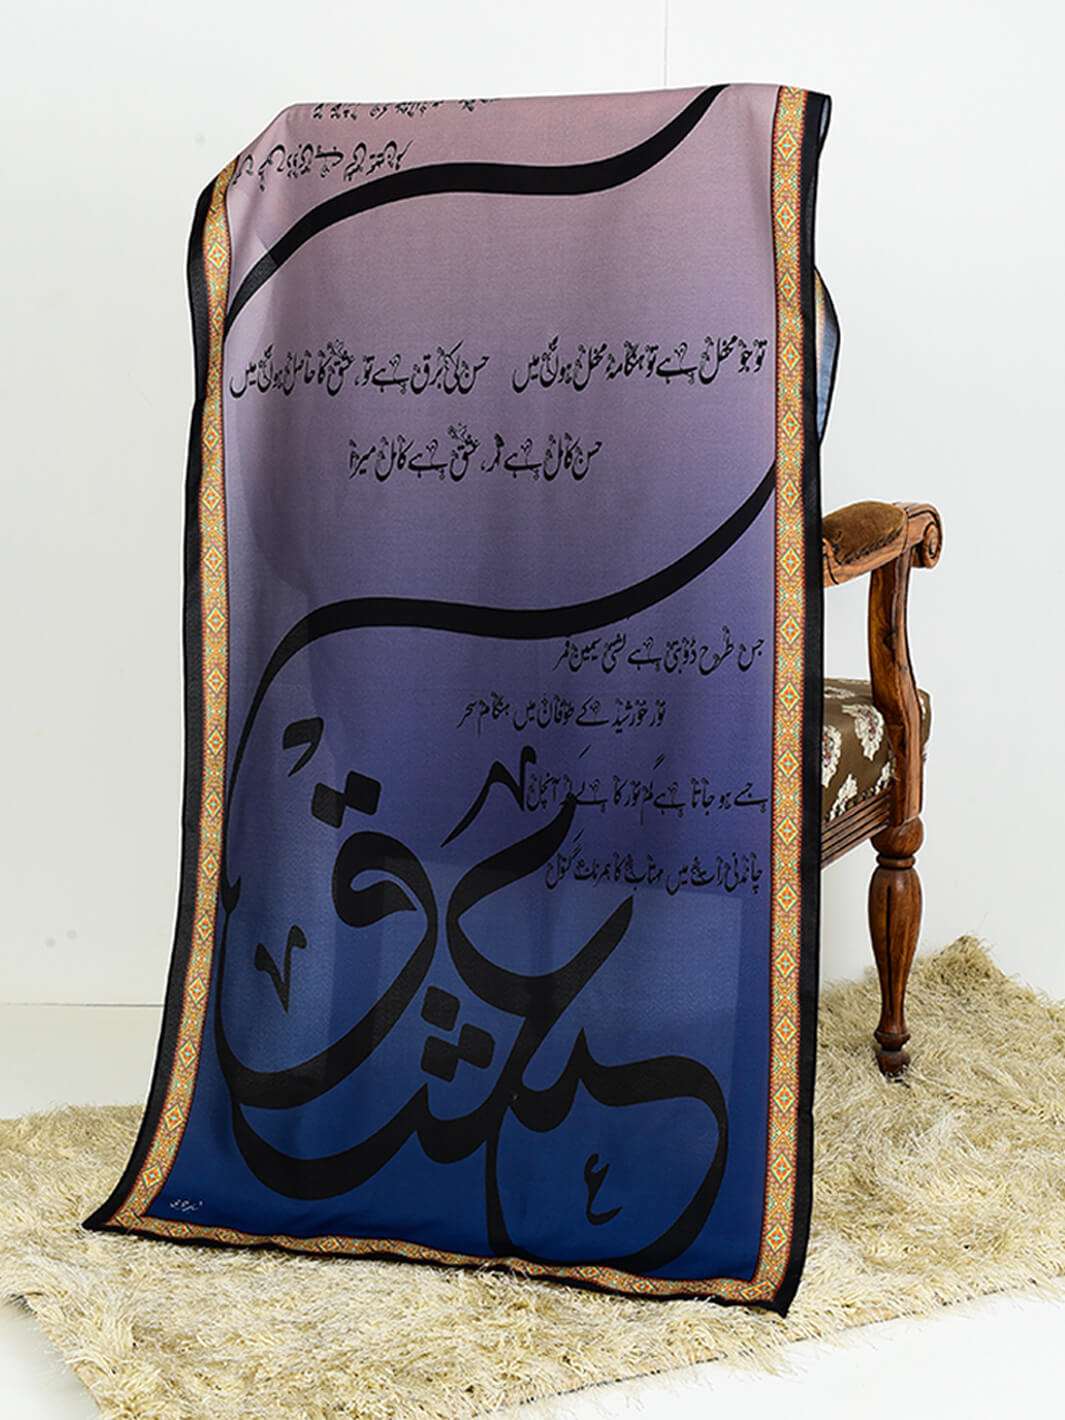 تو جو محفل ہے تو ہنگامۂ محفل ہوں میں حسن کی برق ہے تو، عشق کا حاصل ہوں میں
حسن کامل ہے ترا، عشق ہے کامل میرا
جس طرح ڈوبتی ہے کشتی سیمین قمر
نور خورشید کے طوفان میں ہنگام سحر
جیسے ہو جاتا ہے گم نور کا لے کر آنچل
چاندنی رات میں مہتاب کا ہمرنگ کنول
عشق